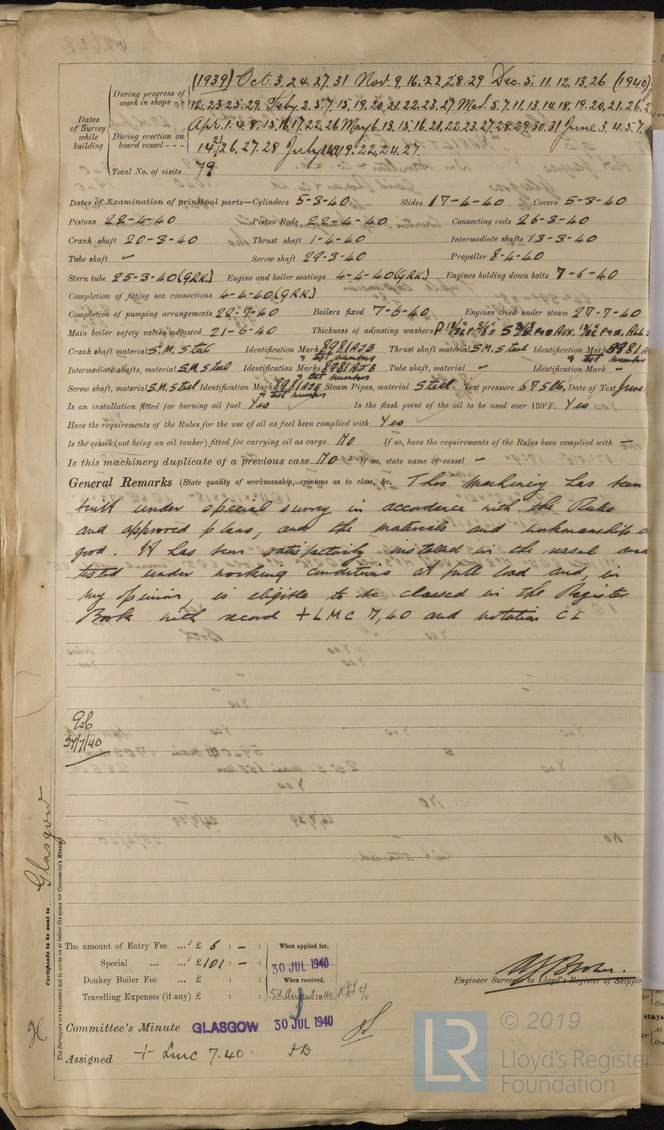 Dates of Survey while building
During progress of work in shops -- (1939) Oct. 3, 24. 27. 31 Nov. 9, 16. 22, 28. 29 Dec. 5. 11. 12, 13, 26 (1940)
12, 23. 25. 29 Feby. 2. 5. 7. 15. 19. 20. 21. 22. 23. 27 Mar. 5. 7. 11. 13. 14. 18. 19. 20. 21. 26.
During erection on board vessel --- Apr. 1. 4. 8. 15. 16. 17. 22. 26 May 6. 13. 15. 16. 21. 22. 23. 27. 28. 29. 30. 31 June 3. 4. 5. 7.
26, 27. 28 July 19. 22, 24. 27.
Total No. of visits 79
Dates of Examination of principal parts—Cylinders 5-3-40 Slides 17-4-40 Covers 5-3-40
Pistons 22-4-40 Piston Rods 22-4-40 Connecting rods 26-3-40
Crank shaft 20-3-40 Thrust shaft 1-4-40 Intermediate shafts 13-3-40
Tube shaft - Screw shaft 29-3-40 Propeller 8-4-40
Stern tube 25-3-40 (GRK.) Engine and boiler seatings 4-4-40 (GRK.) Engines holding down bolts 7-6-40
Completion of fitting sea connections 4-4-40 (GRK.)
Completion of pumping arrangements 22-7-40 Boilers fixed 7-6-40 Engines tried under steam 27-7-40
Main boiler safety valves adjusted 21-6-40 Thickness of adjusting washers
Crank shaft material S.M. Steel Identification Mark 8981 AJB & test numbers Thrust shaft material S.M. Steel Identification Mark 8981 & test numbers
Intermediate shafts, material S.M. Steel Identification Marks 8981 AJB & test numbers Tube shaft, material - Identification Mark -
Screw shaft, material S.M. Steel Identification Mark 8981 AJB & test numbers Steam Pipes, material Steel Test pressure 675 lbs. Date of Test June
Is an installation fitted for burning oil fuel Yes Is the flash point of the oil to be used over 150°F. Yes
Have the requirements of the Rules for the use of oil as fuel been complied with Yes
Is the vessel (not being an oil tanker) fitted for carrying oil as cargo No If so, have the requirements of the Rules been complied with -
Is this machinery duplicate of a previous case No If so, state name of vessel -
General Remarks (State quality of workmanship, opinions as to class, &c. This machinery has been
built under special survey in accordance with the Rules
and approved plans, and the materials and workmanship
good. It has been satisfactorily installed in the vessel and
tested under working conditions at full load and, in
my opinion, is eligible to be classed in the Register
Book with record + LMC 7,40 and notation CL
31/7/40
Glasgow
Certificate to be sent to
The Surveyors are requested not to write on or below the space for Committee's Minute.
The amount of Entry Fee ... £ 6 : - :
Special ... ... £ 101 : - :
Donkey Boiler Fee ... £ : :
Travelling Expenses (if any) £ : :
When applied for,
30 JUL 1940
When received,
5th August 1940
Engineer Surveyor to Lloyd's Register of Shipping
Committee's Minute GLASGOW 30 JUL 1940
Assigned + LMC 7.40 FD
LR
© 2019
Lloyd's Register
Foundation